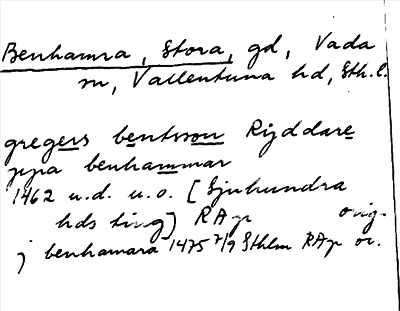 Benhamra, Stora, gd, Vada
sn, Vallentuna hd, Sth. l.
gregers bentsson Riddare
uppa benhammar
1462 u.d. u.o. [Sjuhundra
hds ting] RAp orig.
j benhamara 1475 7/9 Sthlm RAp or.